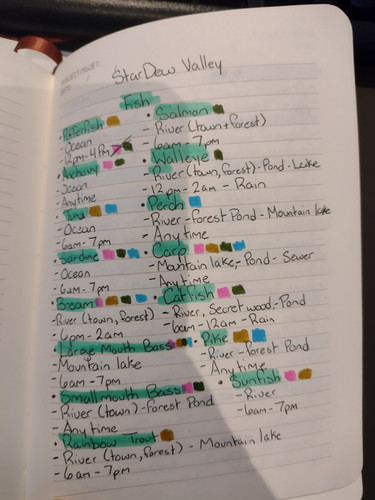 StarDew Valley
Fish
• Pufferfish
- Ocean
- 12pm-4pm
• Anchovy
- Ocean
- Anytime
• Tuna
- Ocean
- 6am-7pm
• Sardine
- Ocean
- 6am-7pm
• Bream
- River (town, forest)
- 6pm-2am
• Large Mouth Bass
- Mountain lake
- 6am-7pm
• Smallmouth Bass
- River (town)-Forest Pond
- Anytime
• Rainbow Trout
- River (town, forest) - Mountain lake
- 6am-7pm
• Salmon
- River (town+forest)
- 6am-7pm
• Walleye
- River (town, forest)-Pond-Lake
- 12pm-2am - Rain
• Perch
- River-forest Pond-Mountain lake
- Anytime
• Carp
- Mountain lake,-Pond-Sewer
- Anytime
• Catfish
- River, Secret wood,-Pond
- 6am-12am-Rain
• Pike
- River-forest Pond
- Anytime
• Sunfish
- River
- 6am-7pm